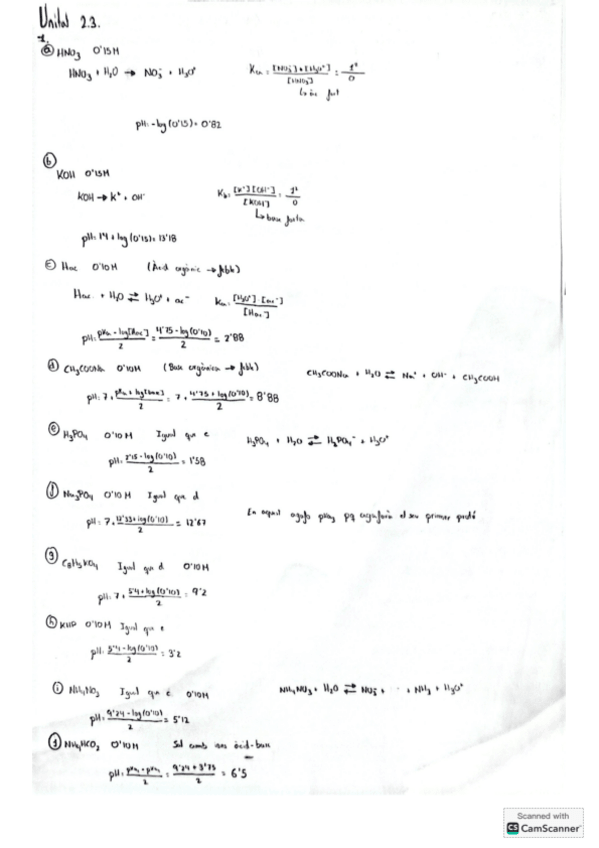 Unitat 2.3.
1.
a HNO3 0'15M
HNO3 + H2O → NO3- + H3O+ Ka = [NO3-]+[H3O+] / [HNO3] = 1² / 0
↳ àc fort
pH = -log(0'15) = 0'82
b
KOH 0'15M
KOH → K+ + OH- Kb = [K+][OH-] / [KOH] = 1² / 0
↳ base forta
pH = 14 + log(0'15) = 13'18
c Hac 0'10M (Àcid orgànic → feble)
Hac + H2O ⇌ H3O+ + ac- Ka = [H3O+]·[ac-] / [Hac]
pH = pKa - log[Hac] / 2 = 4'75 - log(0'10) / 2 = 2'88
d CH3COONa 0'10M (Base orgànica → feble) CH3COONa + H2O ⇌ Na+ + OH- + CH3COOH
pH = 7 + pKa + log[base] / 2 = 7 + 4'75 + log(0'10) / 2 = 8'88
e H3PO4 0'10M Igual que c H3PO4 + H2O ⇌ H2PO4- + H3O+
pH = 2'15 - log(0'10) / 2 = 1'58
f Na3PO4 0'10M Igual que d
pH = 7 + 12'33 + log(0'10) / 2 = 12'67 En aquest agafo pKa3 pq agafaria el seu primer protó
g C8H5KO4 Igual que d 0'10M
pH = 7 + 5'4 + log(0'10) / 2 = 9'2
h KHP 0'10M Igual que c
pH = 5'4 - log(0'10) / 2 = 3'2
i NH4NO3 Igual que c 0'10M NH4NO3 + H2O ⇌ NO3- + NH3 + H3O+
pH = 9'24 - log(0'10) / 2 = 5'12
j NH4HCO2 0'10M Sal amb ions àcid-base
pH = pKa1 + pKa2 / 2 = 9'24 + 3'75 / 2 = 6'5
Scanned with
CS CamScanner